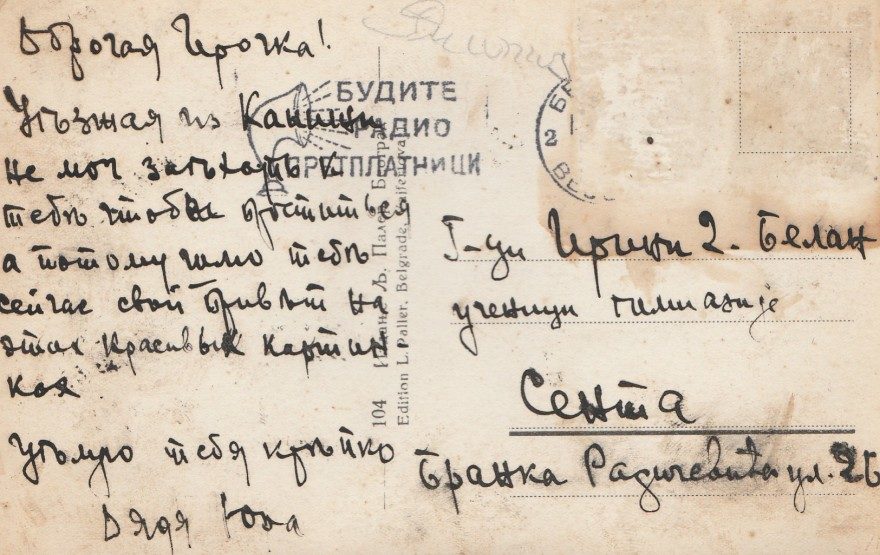 Дорогая Ирочка!
Уѣзжая из Канижи
не мог заѣхать к
тебѣ чтобы проститься
а потому шлю тебѣ
сейчас свой привѣт на
этих красивых картин
ках
тебя крѣпко
Дядя
БУДИТЕ
РАДИО
ПРЕТПЛАТНИЦИ
104
Edition L. Paller, Belgrade,
2
Г-ци Ирини Белан
ученици гимназије
Сента
Бранка Радичевића ул. 2Б